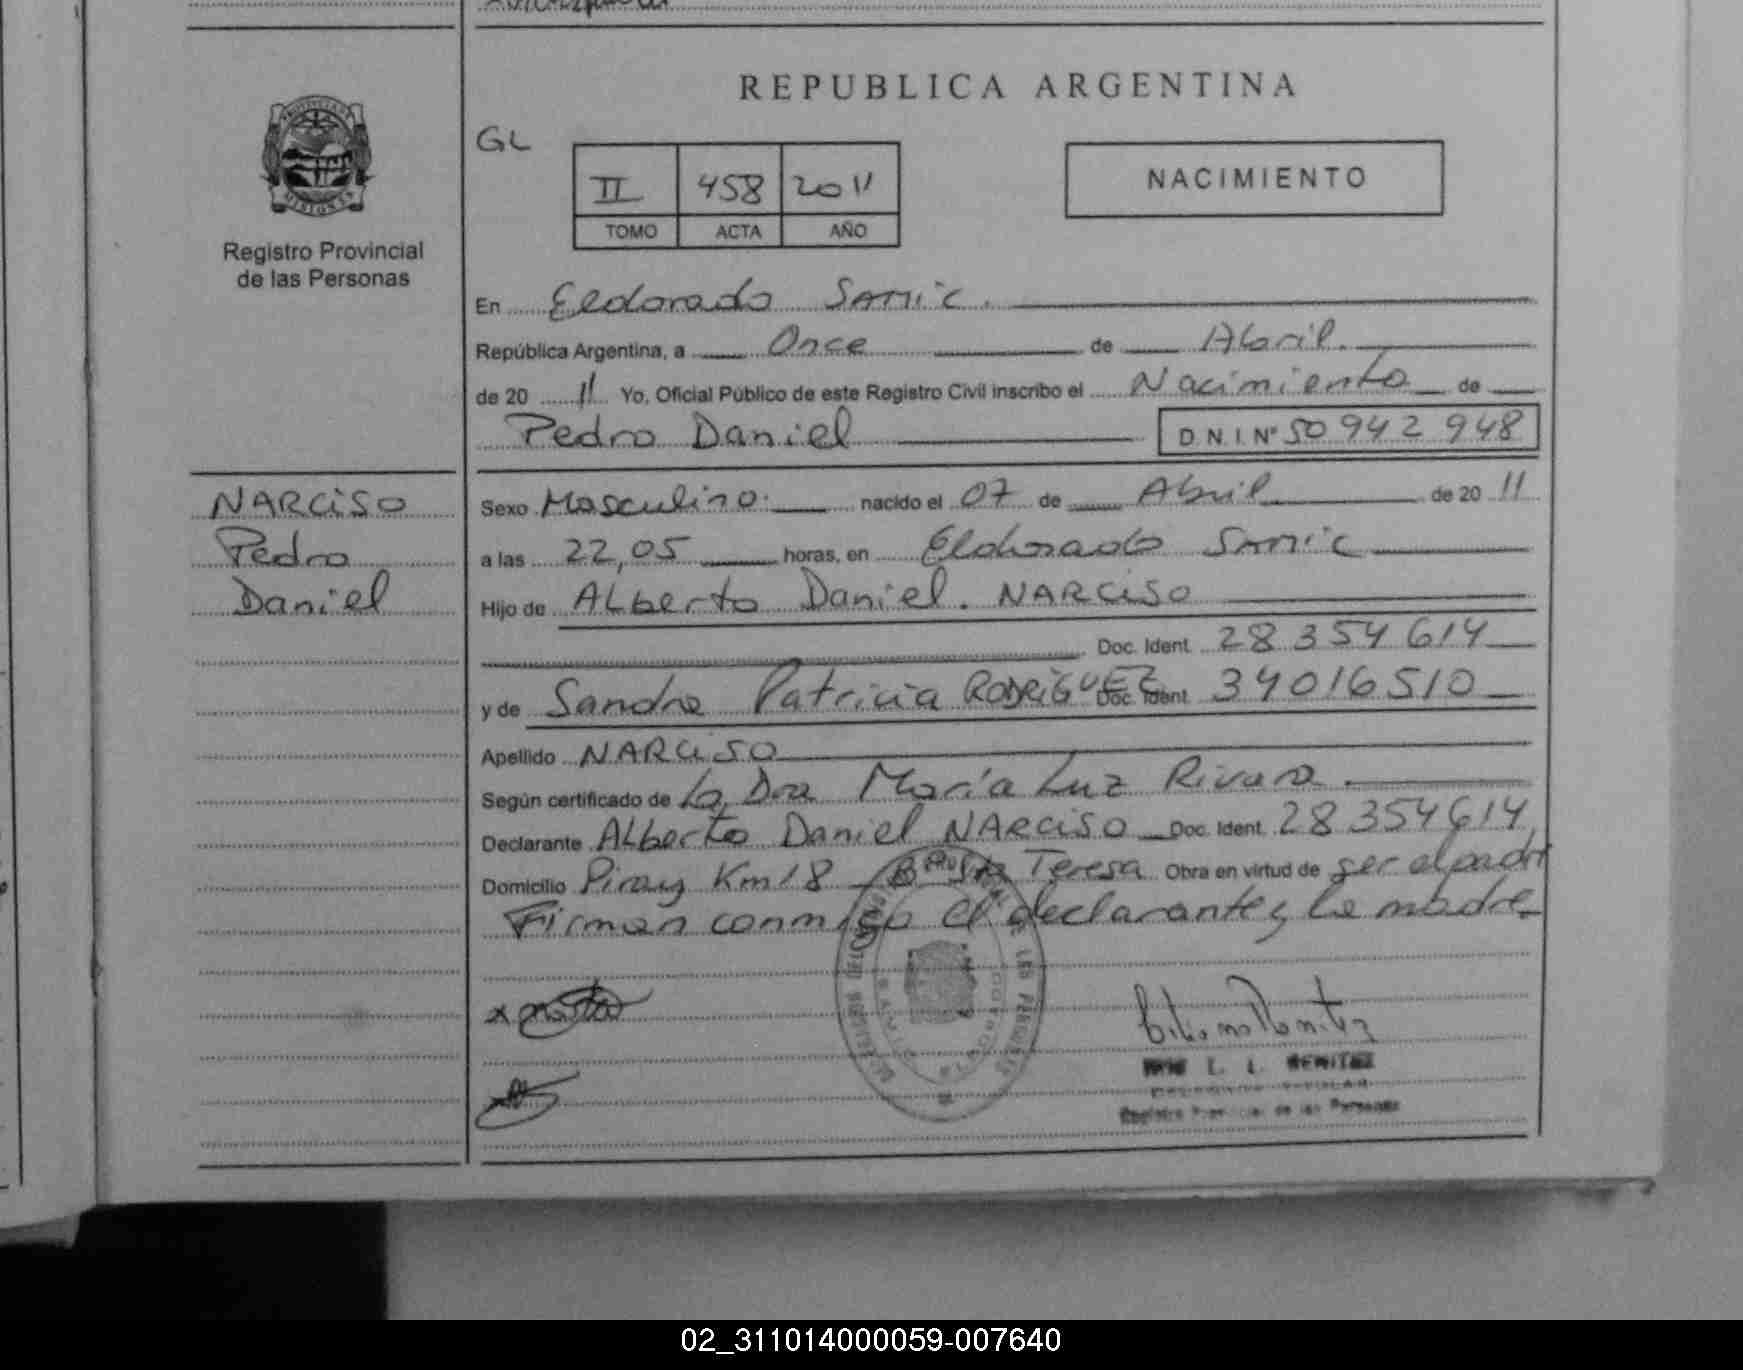 REPUBLICA ARGENTINA
GL
II 458 2011
TOMO ACTA AÑO
NACIMIENTO
Registro Provincial
de las Personas
En Eldorado SAMIC.
República Argentina, a Once de Abril.
de 20 11 Yo, Oficial Público de este Registro Civil inscribo el Nacimiento de
Pedro Daniel D.N.I. Nº 50 942 948
NARCISO
Pedro
Daniel
Sexo Masculino. nacido el 07 de Abril de 20 11
a las 22,05 horas, en Eldorado SAMIC
Hijo de ALberto Daniel. NARCISO
Doc. Ident. 28 354 614
y de Sandra Patricia RODRIGUEZ Doc. Ident. 34016510
Apellido NARCISO
Según certificado de La Dra María Luz Rivara.
Declarante ALberto Daniel NARCISO Doc. Ident. 28 354614
Domicilio Piray Km 18 Bº Sta Teresa Obra en virtud de ser el padre
Firman conmigo el declarante y la madre
L. L. BENITEZ
Registro Provincial de las Personas
02_311014000059-007640